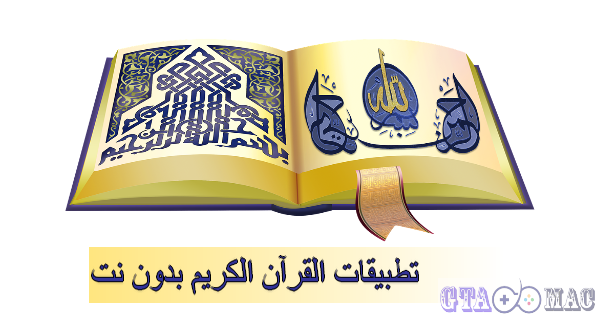 الله
بسم الله الرحمن الرحيم
تطبيقات القرآن الكريم بدون نت
GTA MAC